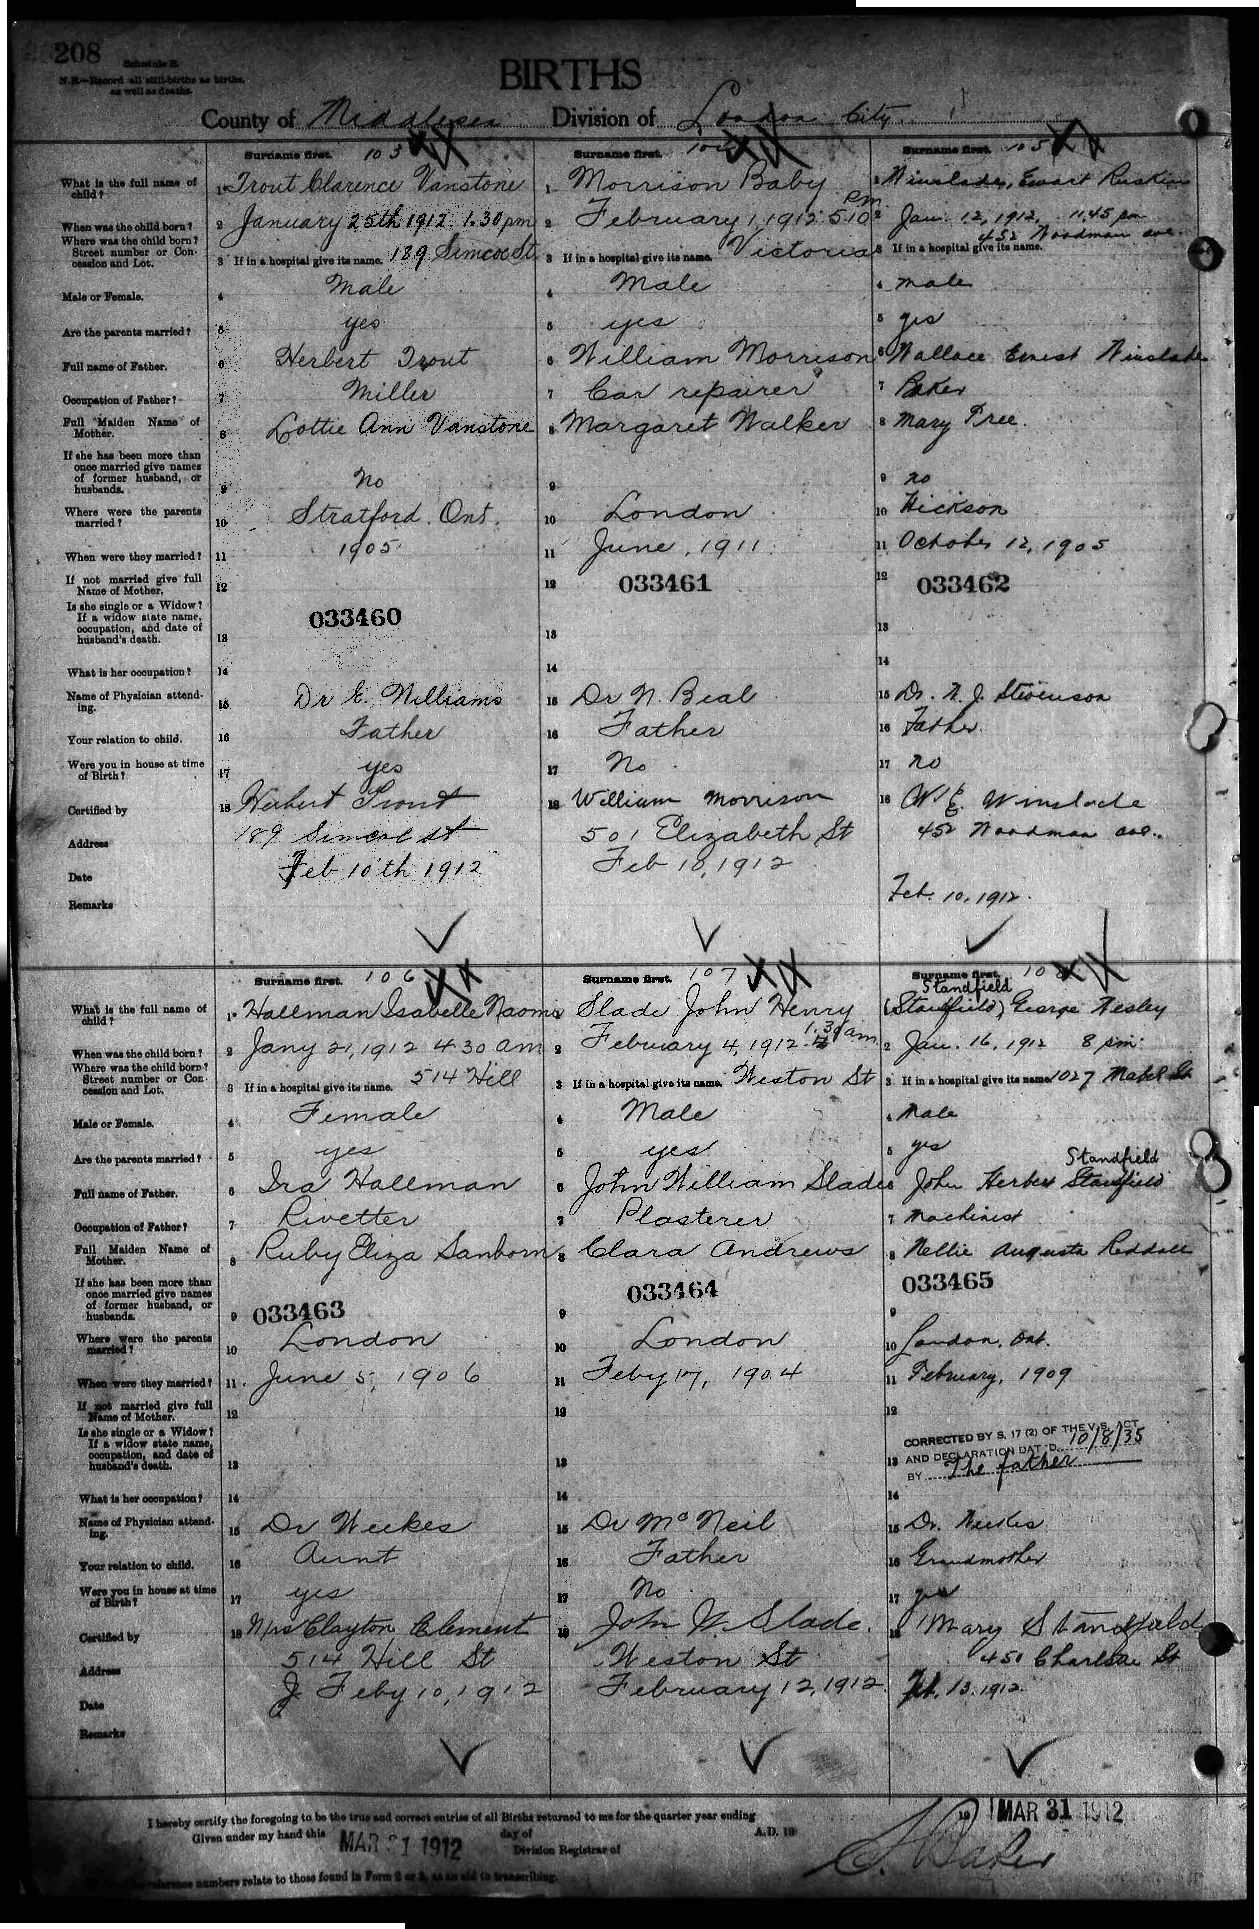 208
Schedule B.
N.B.—Record all still-births as births, as well as deaths.
BIRTHS
County of Middlesex Division of London City
Surname first. 103
Surname first. 104
Surname first. 105
What is the full name of child?
1 Trout Clarence Vanstone
1 Morrison Baby
1 Winslade, Ewart Ruskin
When was the child born?
2 January 25th 1912 1.30 pm
2 February 1, 1912 5.10 pm
2 Jan. 12, 1912, 11.45 pm
Where was the child born? Street number or Concession and Lot.
3 If in a hospital give its name. 189 Simcoe St
3 If in a hospital give its name. Victoria
3 If in a hospital give its name. 452 Woodman ave.
Male or Female.
4 Male
4 Male
4 male
Are the parents married?
5 yes
5 yes
5 yes
Full name of Father.
6 Herbert Trout
6 William Morrison
6 Wallace Ernest Winslade
Occupation of Father?
7 Miller
7 Car repairer
7 Baker
Full Maiden Name of Mother.
8 Lottie Ann Vanstone
8 Margaret Walker
8 Mary Pree.
If she has been more than once married give names of former husband, or husbands.
9 No
9
9 no
Where were the parents married?
10 Stratford. Ont.
10 London
10 Hickson
When were they married?
11 1905
11 June, 1911
11 October 12, 1905
If not married give full Name of Mother.
12
12 033461
12 033462
Is she single or a Widow? If a widow state name, occupation, and date of husband's death.
033460
13
13
13
What is her occupation?
14
14
14
Name of Physician attending.
15 Dr E. Williams
15 Dr N. Beal
15 Dr. W. J. Stevenson
Your relation to child.
16 Father
16 Father
16 Father.
Were you in house at time of Birth?
17 yes
17 No
17 no
Certified by
18 Herbert Trout
18 William Morrison
18 W. E. Winslade
Address
189 Simcoe St
501 Elizabeth St
452 Woodman ave.
Date
Feb 10th 1912
Feb 10, 1912
Feb. 10, 1912.
Remarks
Surname first. 106
Surname first. 107
Surname first. 108
What is the full name of child?
1 Hallman Isabelle Naomi
1 Slade John Henry
Standfield
1 (Stansfield) George Wesley
When was the child born?
2 Jany 21, 1912 4 30 am
2 February 4, 1912 1.30 am
2 Jan. 16, 1912 8 pm.
Where was the child born? Street number or Concession and Lot.
3 If in a hospital give its name. 514 Hill
3 If in a hospital give its name. Weston St
3 If in a hospital give its name 1027 Mabel St
Male or Female.
4 Female
4 Male
4 Male
Are the parents married?
5 yes
5 yes
5 yes
Full name of Father.
6 Ira Hallman
6 John William Slade
Standfield
6 John Herbert Stansfield
Occupation of Father?
7 Rivetter
7 Plasterer
7 Machinist
Full Maiden Name of Mother.
8 Ruby Eliza Sanborn
8 Clara Andrews
8 Nellie Augusta Reddall
If she has been more than once married give names of former husband, or husbands.
9 033463
033464
9
033465
9
Where were the parents married?
10 London
10 London
10 London, Ont.
When were they married?
11 June 5, 1906
11 Feby 17, 1904
11 February, 1909
If not married give full Name of Mother.
12
12
12
Is she single or a Widow? If a widow state name, occupation, and date of husband's death.
13
13
CORRECTED BY S. 17 (2) OF THE V.S. ACT
13 AND DECLARATION DATED 10/8/35
BY The father
What is her occupation?
14
14
14
Name of Physician attending.
15 Dr Weekes
15 Dr McNeil
15 Dr. Weekes
Your relation to child.
16 Aunt
16 Father
16 Grandmother
Were you in house at time of Birth?
17 yes
17 No
17 yes
Certified by
18 Mrs Clayton Clement
18 John W. Slade.
18 Mary Standfield
Address
514 Hill St
Weston St
450 Charlotte St
Date
Feby 10, 1912
February 12, 1912.
Feb. 13. 1912.
Remarks
I hereby certify the foregoing to be the true and correct entries of all Births returned to me for the quarter year ending MAR 31 1912
Given under my hand this MAR 31 1912 day of A.D. 19
Division Registrar of
reference numbers relate to those found in Form 2 or 3, as an aid in transcribing.